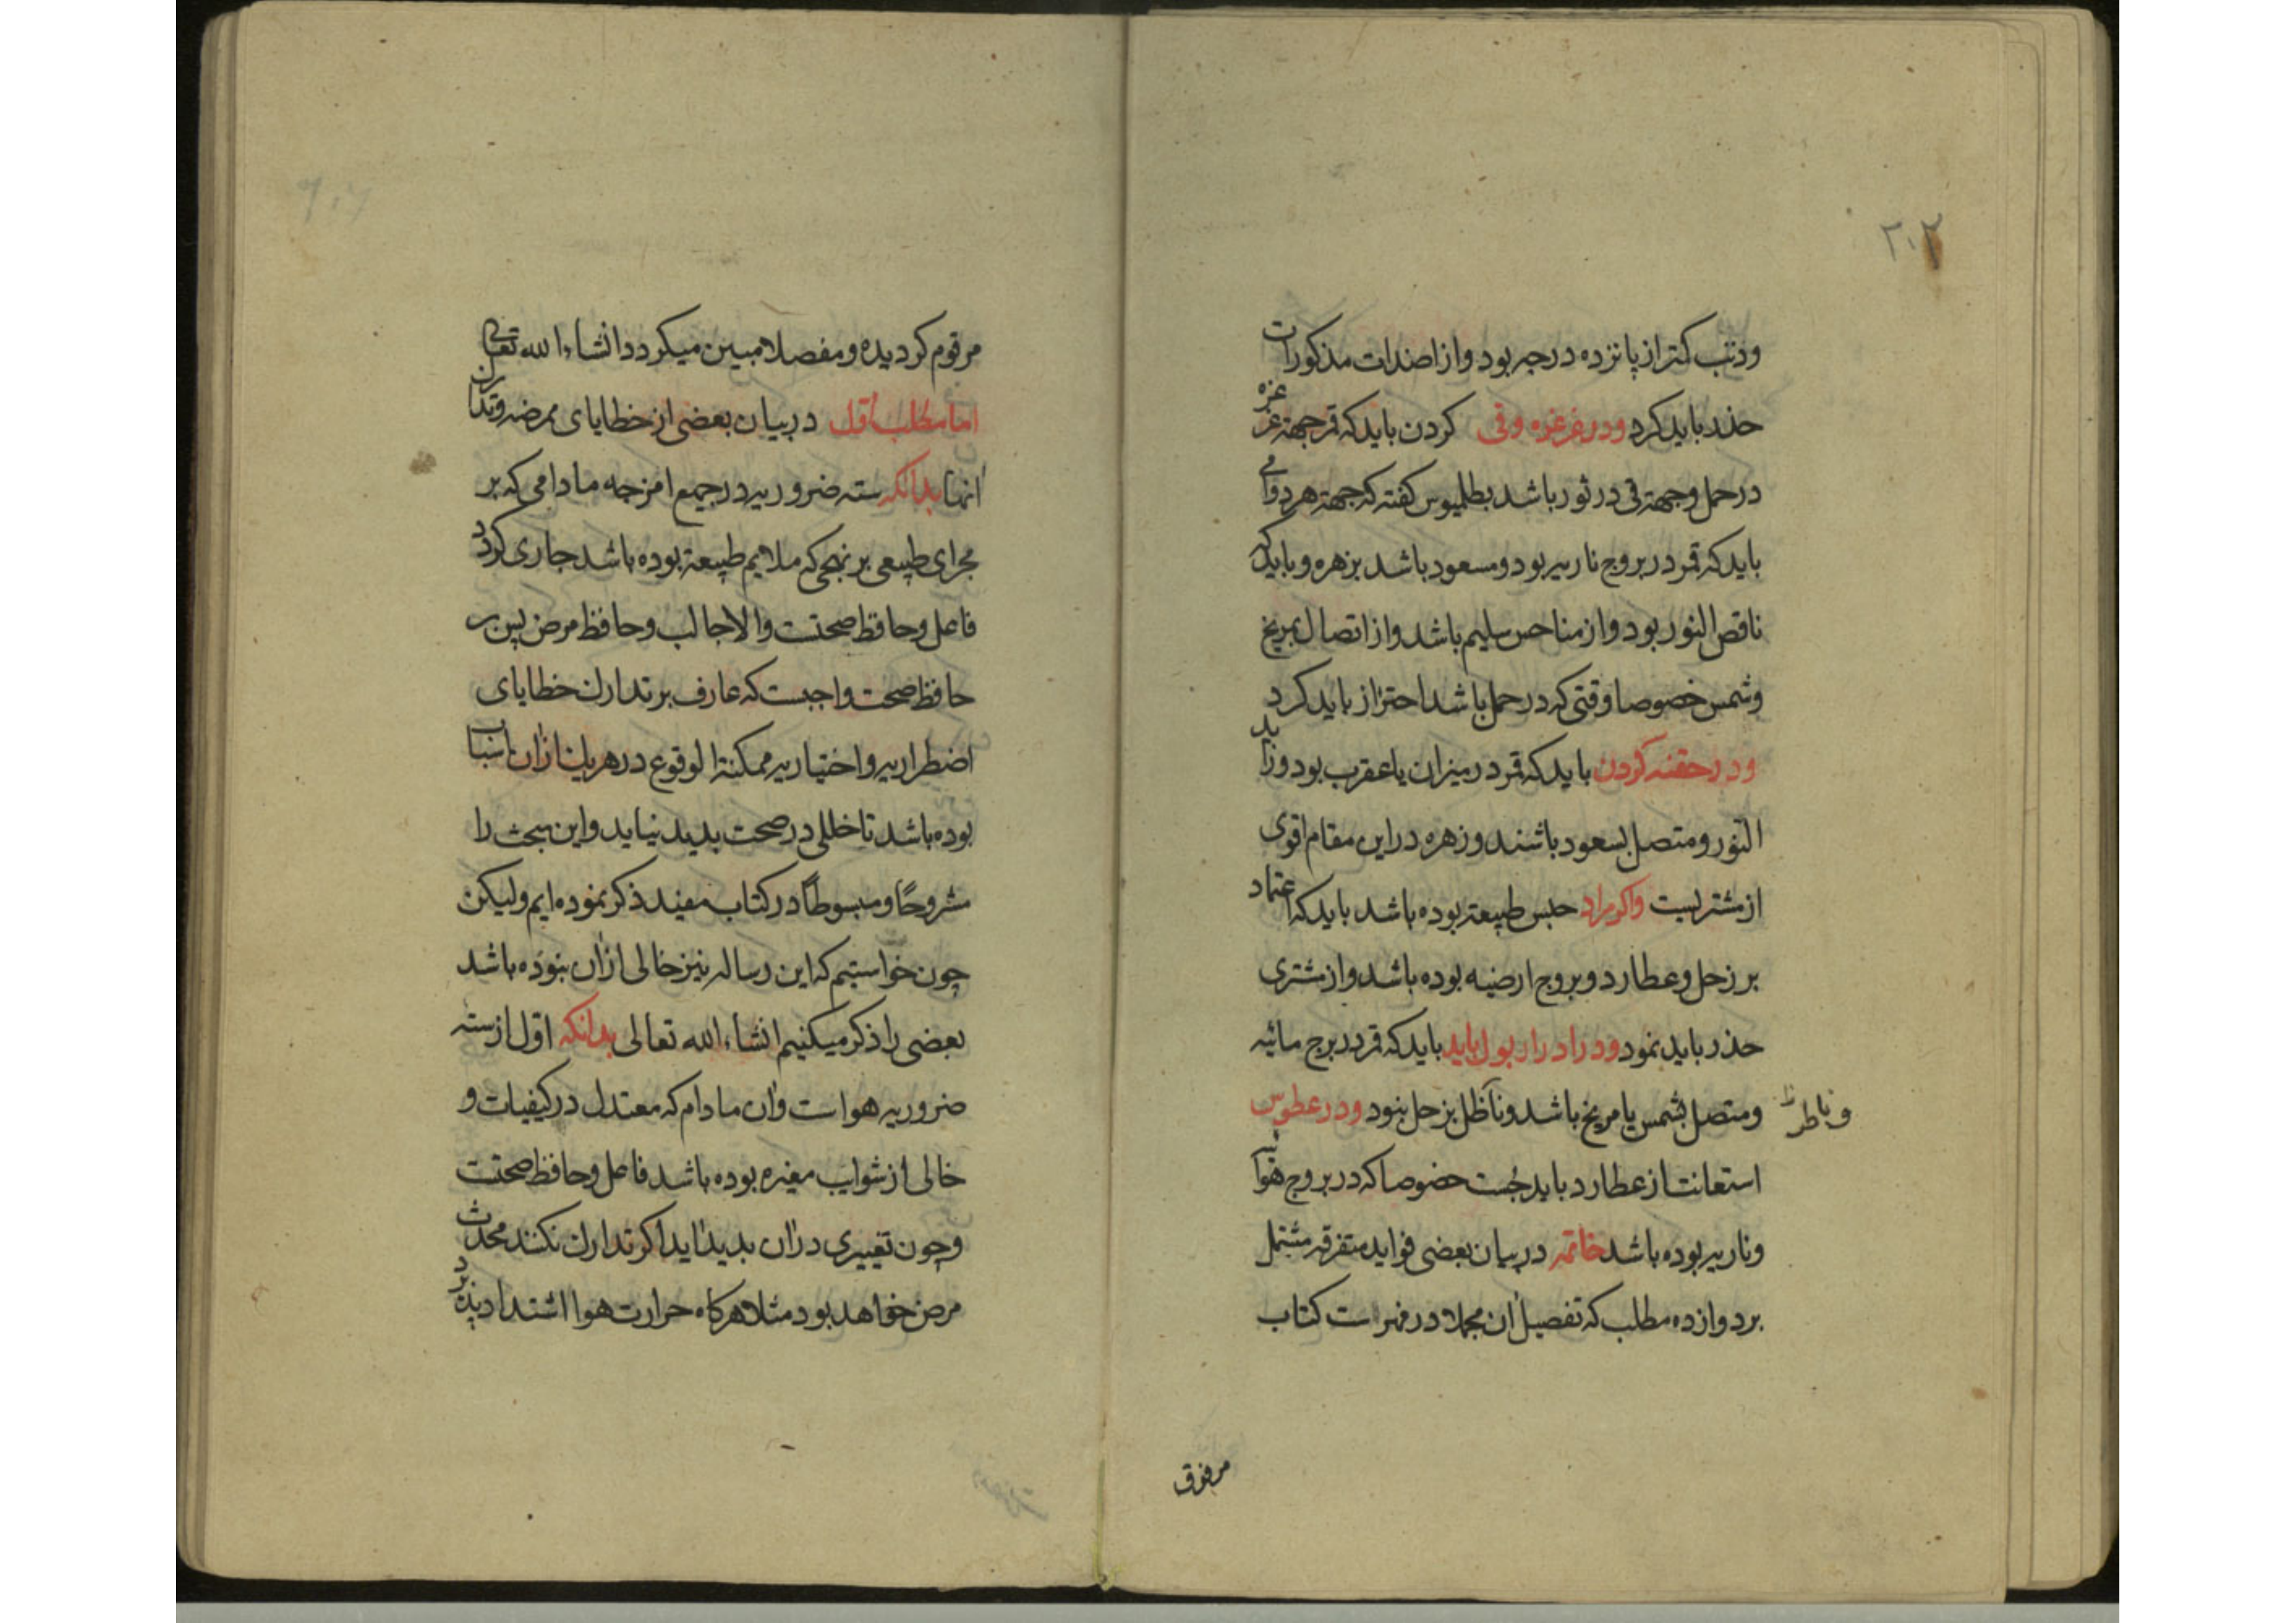 ۲۰۲
وذنب کمتر از پانزده درجه بود و از اضدات مذکورات
حذر باید کرد ودر غرغره وقی کردن باید که قمر جهة غرغره
در حمل وجهة قی در ثور باشد بطلمیوس کفته که جهة هر دوامی
باید که قمر در بروج ناریه بود ومسعود باشد بزهره و باید که
ناقص النور بود و از مناحس سلیم باشد و از اتصال بمریخ
وشمس خصوصا وقتی که در حمل باشد احتراز باید کرد
ودر حقنه کردن باید که قمر در میزان یا عقرب بود وزاید
النور و متصل بسعود باشند وزهره در این مقام اقوی
از مشتریست واکر مراد حبس طبیعة بوده باشد باید که اعتماد
بر زحل وعطارد وبروج ارضیه بوده باشد واز مشتری
حذر باید نمود ودر ادرار بول باید باید که قمر در برج مائیه
ومتصل بشمس یا مریخ باشد وناظل بزحل بنود ودر عطوس
وناظر
استعانت از عطارد باید جُست خصوصا که در بروج هوائیه
وناریه بوده باشد خاتمه در بیان بعضی فواید متفرقه مشتمل
بر دوازده مطلب که تفصیل آن مجملا در فهرست کتاب
مرقوم کردیده و مفصلا مبین میکردد انشاءالله تعالی
اما مطلب اوّل در بیان بعضی از خطایای ممرضه وتدارک
آنها بدانکه سته ضروریه در جمیع امزجه مادامی که بر
مجرای طبیعی بر نهجی که ملایم طبیعة بوده باشد جاری کردد
فاعل وحافظ صحتست والا جالب وحافظ مرض پس بر
حافظ صحت واجبست که عارف بر تدارک خطایای
اضطراریه و اختیاریه ممکنة الوقوع در هر یک ازان اسباب
بوده باشد تا خللی در صحت بدید نیاید واین مبحث را
مشروحًا ومبسوطًا در کتاب مفید ذکر نموده ایم ولیکن
چون خواستیم که این رساله نیز خالی ازان بنوده باشد
بعضی را ذکر میکنیم انشاءالله تعالی بدانکه اوّل از سته
ضروریه هواست وآن مادام که معتدل در کیفیات و
خالی از شوایب مغیره بوده باشد فاعل وحافظ صحتست
وچون تغییری دران بدید آید اکر تدارک نکنند محدث
مرض خواهد بود مثلا هرکاه حرارت هوا اشتداد پذیرد